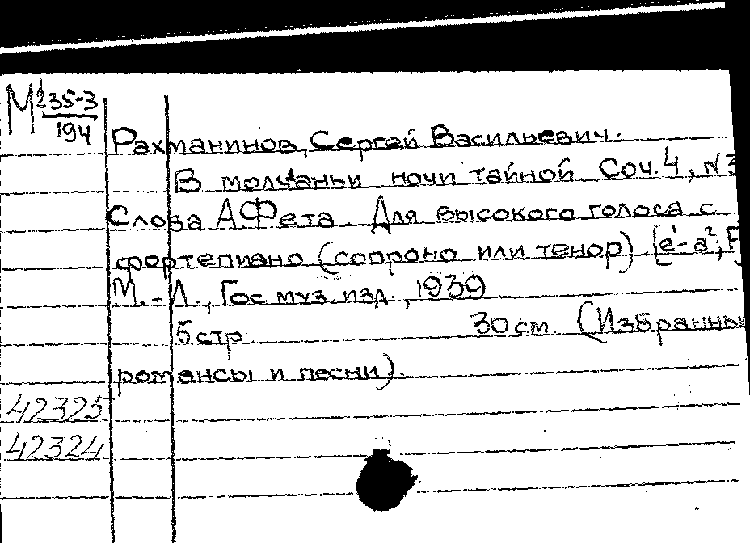 М 235-3
194
Рахманинов, Сергей Васильевич.
В молчаньи ночи тайной. Соч. 4, N3
Слова А.Фета. Для высокого голоса с
фортепиано (сопрано или тенор) [e¹-a², F
М.-Л., Гос муз изд, 1939
5 стр. 30 см. (Избранны
романсы и песни).
42325
42324